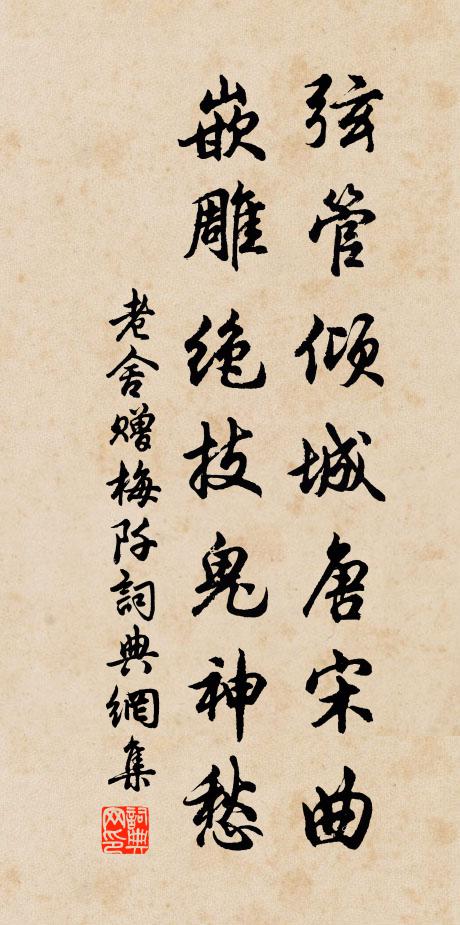 弦管倾城唐宋曲
嵌雕绝技鬼神愁
老舍赠梅阡詞典網集
詞典网印